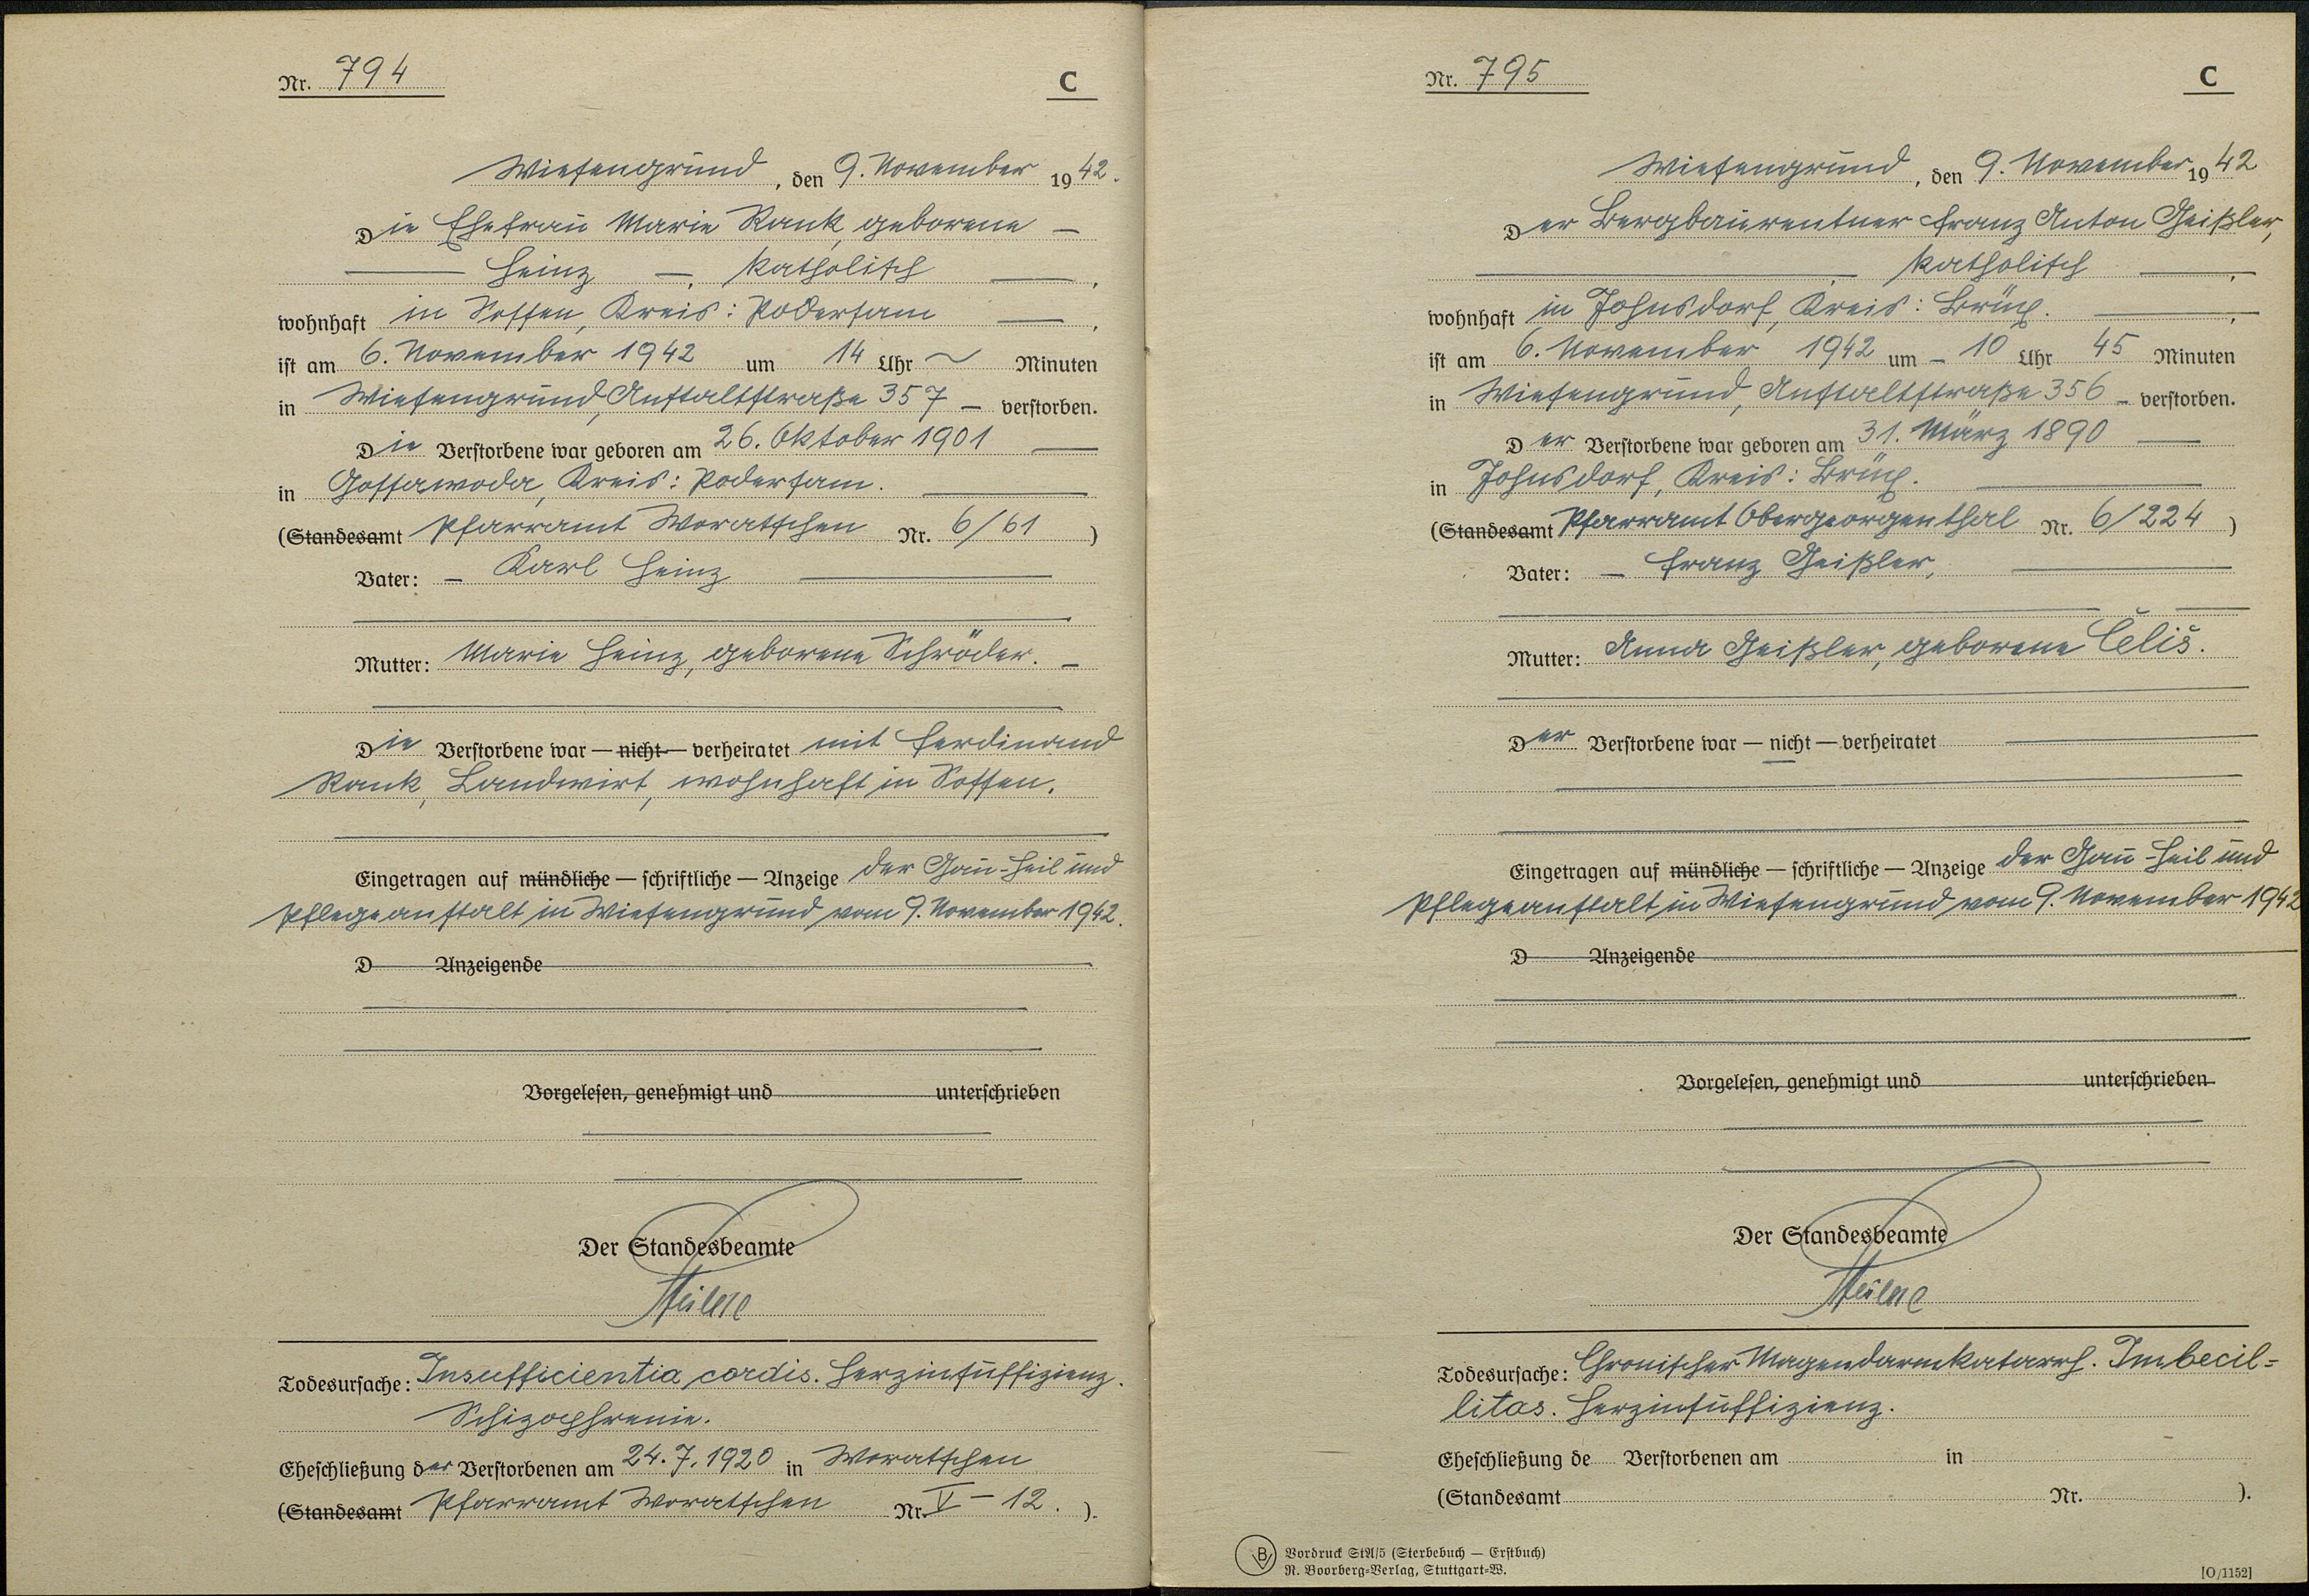 Nr. 794
C
Wiesengrund, den 9. November 1942.
Die Ehefrau Marie Rank, geborene —
— Heinz —, katholisch —,
wohnhaft in Sossen, Kreis: Podersam —,
ist am 6. November 1942 um 14 Uhr ~ Minuten
in Wiesengrund, Anstaltstraße 357 — verstorben.
Die Verstorbene war geboren am 26. Oktober 1901 —
in Gossawoda, Kreis: Podersam. —
(Standesamt Pfarramt Woratschen Nr. 6/61 )
Vater: — Karl Heinz —
Mutter: Marie Heinz, geborene Schröder. —
Die Verstorbene war — nicht — verheiratet mit Ferdinand
Rank, Landwirt, wohnhaft in Sossen.
Eingetragen auf mündliche — schriftliche — Anzeige der Gau-Heil und
Pflegeanstalt in Wiesengrund vom 9. November 1942.
D Anzeigende
Vorgelesen, genehmigt und unterschrieben
Der Standesbeamte
Todesursache: Insufficientia cordis. Herzinsuffizienz.
Schizophrenie.
Eheschließung der Verstorbenen am 24.7.1920 in Woratschen
(Standesamt Pfarramt Woratschen Nr. V – 12. ).
Nr. 795
C
Wiesengrund, den 9. November 1942
Der Bergbaurentner Franz Anton Geißler,
—, katholisch —,
wohnhaft in Johnsdorf, Kreis: Brüx. —,
ist am 6. November 1942 um – 10 Uhr 45 Minuten
in Wiesengrund, Anstaltstraße 356 – verstorben.
Der Verstorbene war geboren am 31. März 1890 —
in Johnsdorf, Kreis: Brüx. —
(Standesamt Pfarramt Obergeorgenthal Nr. 6/224 )
Vater: — Franz Geißler, —
Mutter: Anna Geißler, geborene Čeliš.
Der Verstorbene war — nicht — verheiratet —
Eingetragen auf mündliche — schriftliche — Anzeige der Gau-Heil und
Pflegeanstalt in Wiesengrund vom 9. November 1942
D Anzeigende
Vorgelesen, genehmigt und unterschrieben
Der Standesbeamte
Todesursache: Chronischer Magendarmkatarrh. Imbecil=
litas. Herzinsuffizienz.
Eheschließung de Verstorbenen am in
(Standesamt Nr. ).
B Vordruck StA/5 (Sterbebuch — Erstbuch)
R. Boorberg-Verlag, Stuttgart-W.
[O/1152]